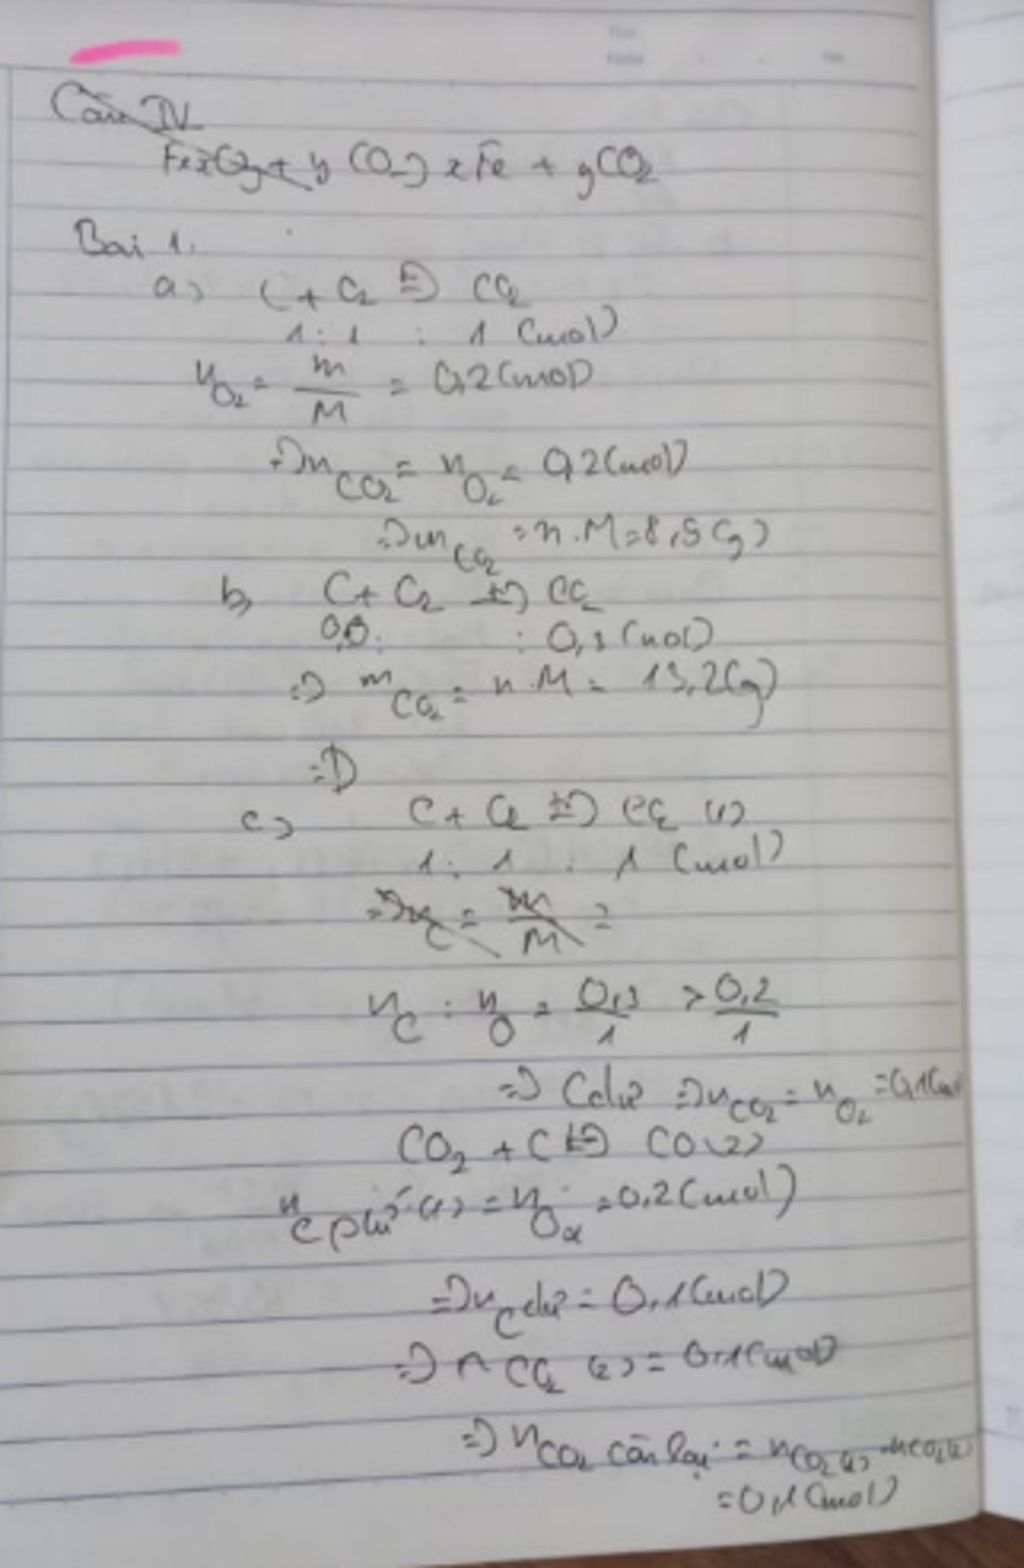 Câu IV
FexOy + y CO -> xFe + yCO2
Bài 1.
a) C + O2 => CO2
1 : 1 : 1 (mol)
nO2 = m/M = 0,2 (mol)
=> nCO2 = nO2 = 0,2 (mol)
=> mCO2 = n.M = 8,8 (g)
b) C + O2 => CO2
: 0,3 (mol)
=> mCO2 = n.M = 13,2 (g)
=>
c) C + O2 => CO2 (1)
1 : 1 : 1 (mol)
=> nC = m/M =
nC : nO = 0,3/1 > 0,2/1
=> C dư => nCO2 = nO2 =
CO2 + C => CO (2)
nC phứ (1) = nO2 = 0,2 (mol)
=> nC dư = 0,1 (mol)
=> nCO2 (2) = 0,1 (mol)
=> nCO2 còn lại = nCO2(1) - nCO2(2)
= 0,1 (mol)